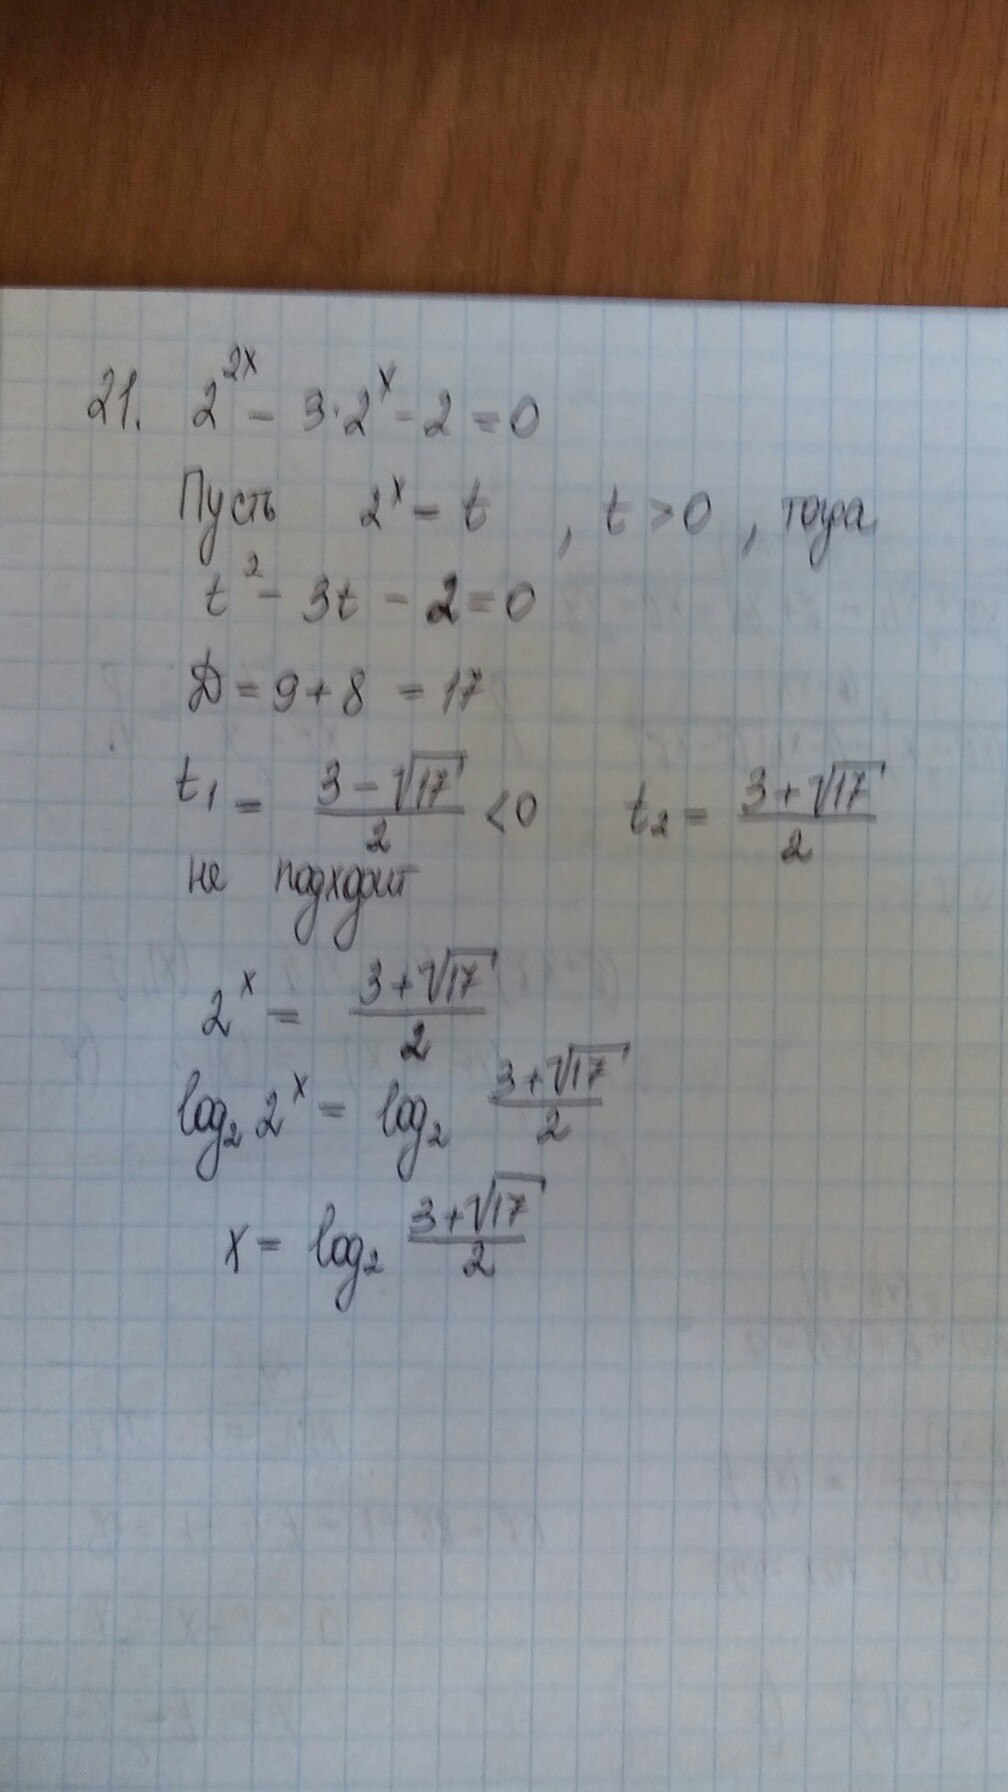 21. 2^{2x} - 3·2^x - 2 = 0
Пусть 2^x = t , t > 0 , тогда
t^2 - 3t - 2 = 0
D = 9 + 8 = 17
t_1 = \frac{3-\sqrt{17}}{2} < 0 t_2 = \frac{3+\sqrt{17}}{2}
не подходит
2^x = \frac{3+\sqrt{17}}{2}
log_2 2^x = log_2 \frac{3+\sqrt{17}}{2}
x = log_2 \frac{3+\sqrt{17}}{2}